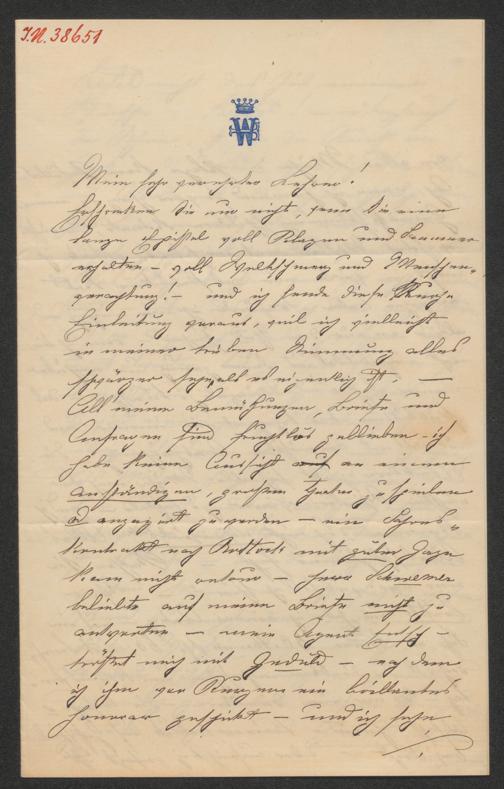 J.N. 38651
W
Mein sehr verehrter Lehrer!
Erschrecken Sie nur nicht, wenn Sie eine
lange Epistel voll Klagen und Jammer
erhalten – voll Weltschmerz und Menschen-
verachtung! – und ich sende diese kurze
Einleitung voraus, weil ich vielleicht
in meiner trüben Stimmung alles
schwärzer sehe, als es eigentlich ist. —
All' meine Bemühungen, Briefe und
Anfragen sind fruchtlos geblieben – ich
habe keine Aussicht auf an einem
anständigen, großen Theater zu spielen
engagirt zu werden – ein Jahres-
kontrakt nach Rostock mit guter Gage
kam nicht retour – Herr
beliebte auf meine Briefe nicht zu
antworten – mein Agent
tröstet mich mit Geduld – nachdem
ich ihm vor Kurzem ein brillantes
Honorar geschickt – und ich sehe